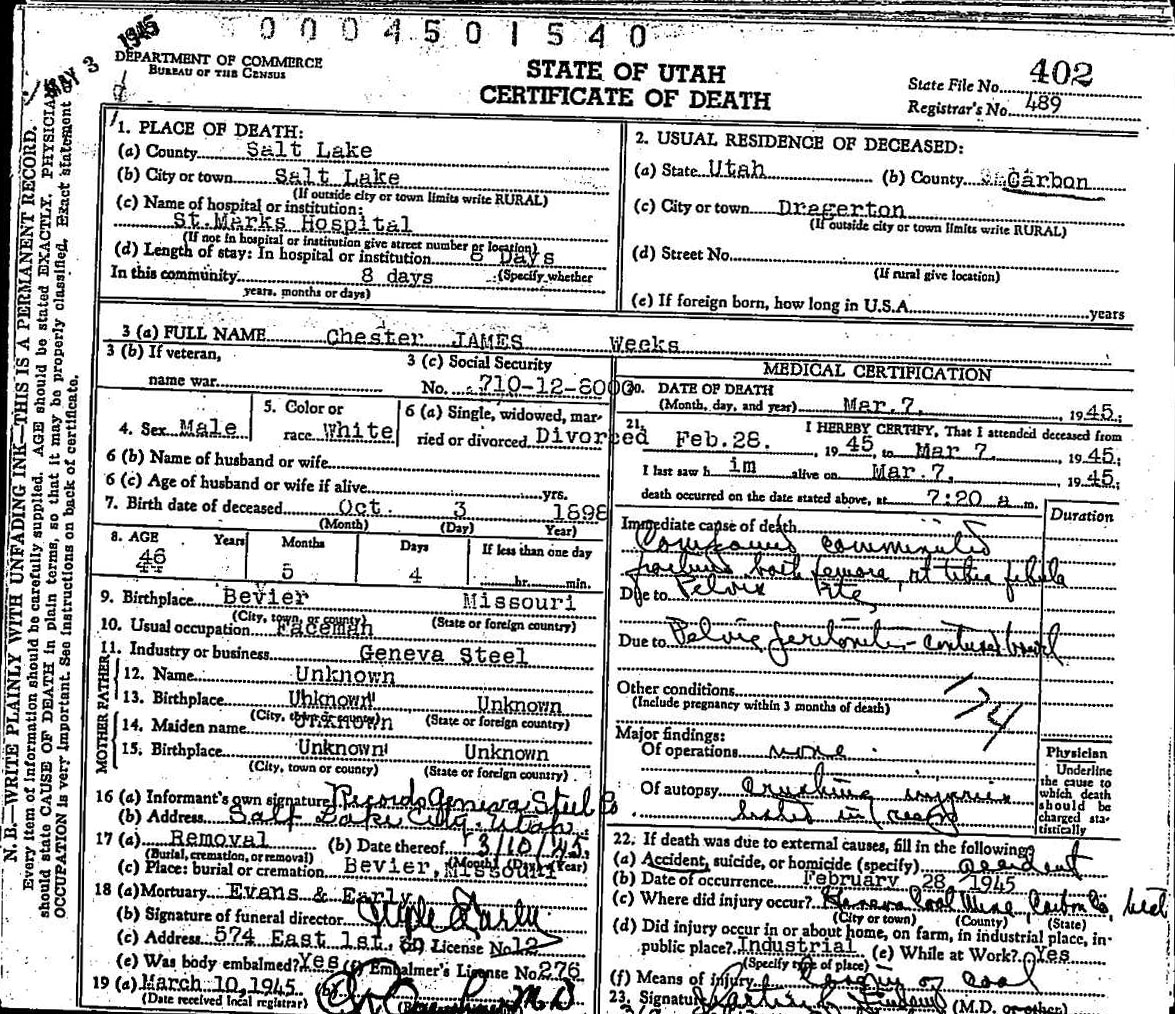 0 0 0 4 5 0 1 5 4 0
MAY 3 1945
DEPARTMENT OF COMMERCE
BUREAU OF THE CENSUS
STATE OF UTAH
CERTIFICATE OF DEATH
State File No. 402
Registrar's No. 489
N. B.—WRITE PLAINLY WITH UNFADING INK—THIS IS A PERMANENT RECORD.
Every item of information should be carefully supplied. AGE should be stated EXACTLY. PHYSICIAN
should state CAUSE OF DEATH in plain terms, so that it may be properly classified. Exact statement of
OCCUPATION is very important. See instructions on back of certificate.
1. PLACE OF DEATH:
(a) County Salt Lake
(b) City or town Salt Lake
(If outside city or town limits write RURAL)
(c) Name of hospital or institution:
St.Marks Hospital
(If not in hospital or institution give street number or location)
(d) Length of stay: In hospital or institution 8 Days
In this community 8 days (Specify whether
years, months or days)
2. USUAL RESIDENCE OF DECEASED:
(a) State Utah (b) County Carbon
(c) City or town Dragerton
(If outside city or town limits write RURAL)
(d) Street No.
(If rural give location)
(e) If foreign born, how long in U.S.A. years
3 (a) FULL NAME Chester JAMES Weeks
3 (b) If veteran,
name war
3 (c) Social Security
No. 710-12-
4. Sex Male
5. Color or
race White
6 (a) Single, widowed, mar-
ried or divorced Divorced
6 (b) Name of husband or wife
6 (c) Age of husband or wife if alive yrs.
7. Birth date of deceased Oct. 3 1898
(Month) (Day) Year)
8. AGE Years Months Days If less than one day
46 5 4 hr. min.
9. Birthplace Bevier Missouri
(City, town, or county) (State or foreign country)
10. Usual occupation Faceman
11. Industry or business Geneva Steel
FATHER
12. Name Unknown
13. Birthplace Unknown Unknown
(City, town or county) (State or foreign country)
MOTHER
14. Maiden name Unknown
15. Birthplace Unknown Unknown
(City, town or county) (State or foreign country)
16 (a) Informant's own signature Records Geneva Steel Co
(b) Address Salt Lake City, Utah
17 (a) Removal (b) Date thereof 3/10/45
(Burial, cremation, or removal) (Month) (Day) (Year)
(c) Place: burial or cremation Bevier, Missouri
18 (a) Mortuary Evans & Early
(b) Signature of funeral director
(c) Address 574 East 1st. So License No 12
(e) Was body embalmed? Yes Embalmer's License No. 276
19 (a) March 10, 1945 (b) M D
(Date received local registrar)
MEDICAL CERTIFICATION
20. DATE OF DEATH
(Month, day, and year) Mar.7, 1945;
21. I HEREBY CERTIFY, That I attended deceased from
Feb.28. , 1945, to Mar 7. , 1945;
I last saw h im alive on Mar.7, , 1945;
death occurred on the date stated above, at 7:20 a m.
Duration
Immediate cause of death
Compound comminuted
fractures both femora, rt tibia fibula
Due to Pelvis
Due to Pelvic peritonitis - contused bowel
Other conditions
(Include pregnancy within 3 months of death)
174
Major findings:
Of operations none
Of autopsy crushing injuries
listed
Physician
Underline
the cause to
which death
should be
charged sta-
tistically
22. If death was due to external causes, fill in the following:
(a) Accident, suicide, or homicide (specify) accident
(b) Date of occurrence February 28 1945
(c) Where did injury occur? Geneva Coal Mine, Carbon Co, Utah
(City or town) (County) (State)
(d) Did injury occur in or about home, on farm, in industrial place, in
public place? Industrial (e) While at Work? Yes
(Specify type of place)
(f) Means of injury of coal
23. Signature (M.D. or other)